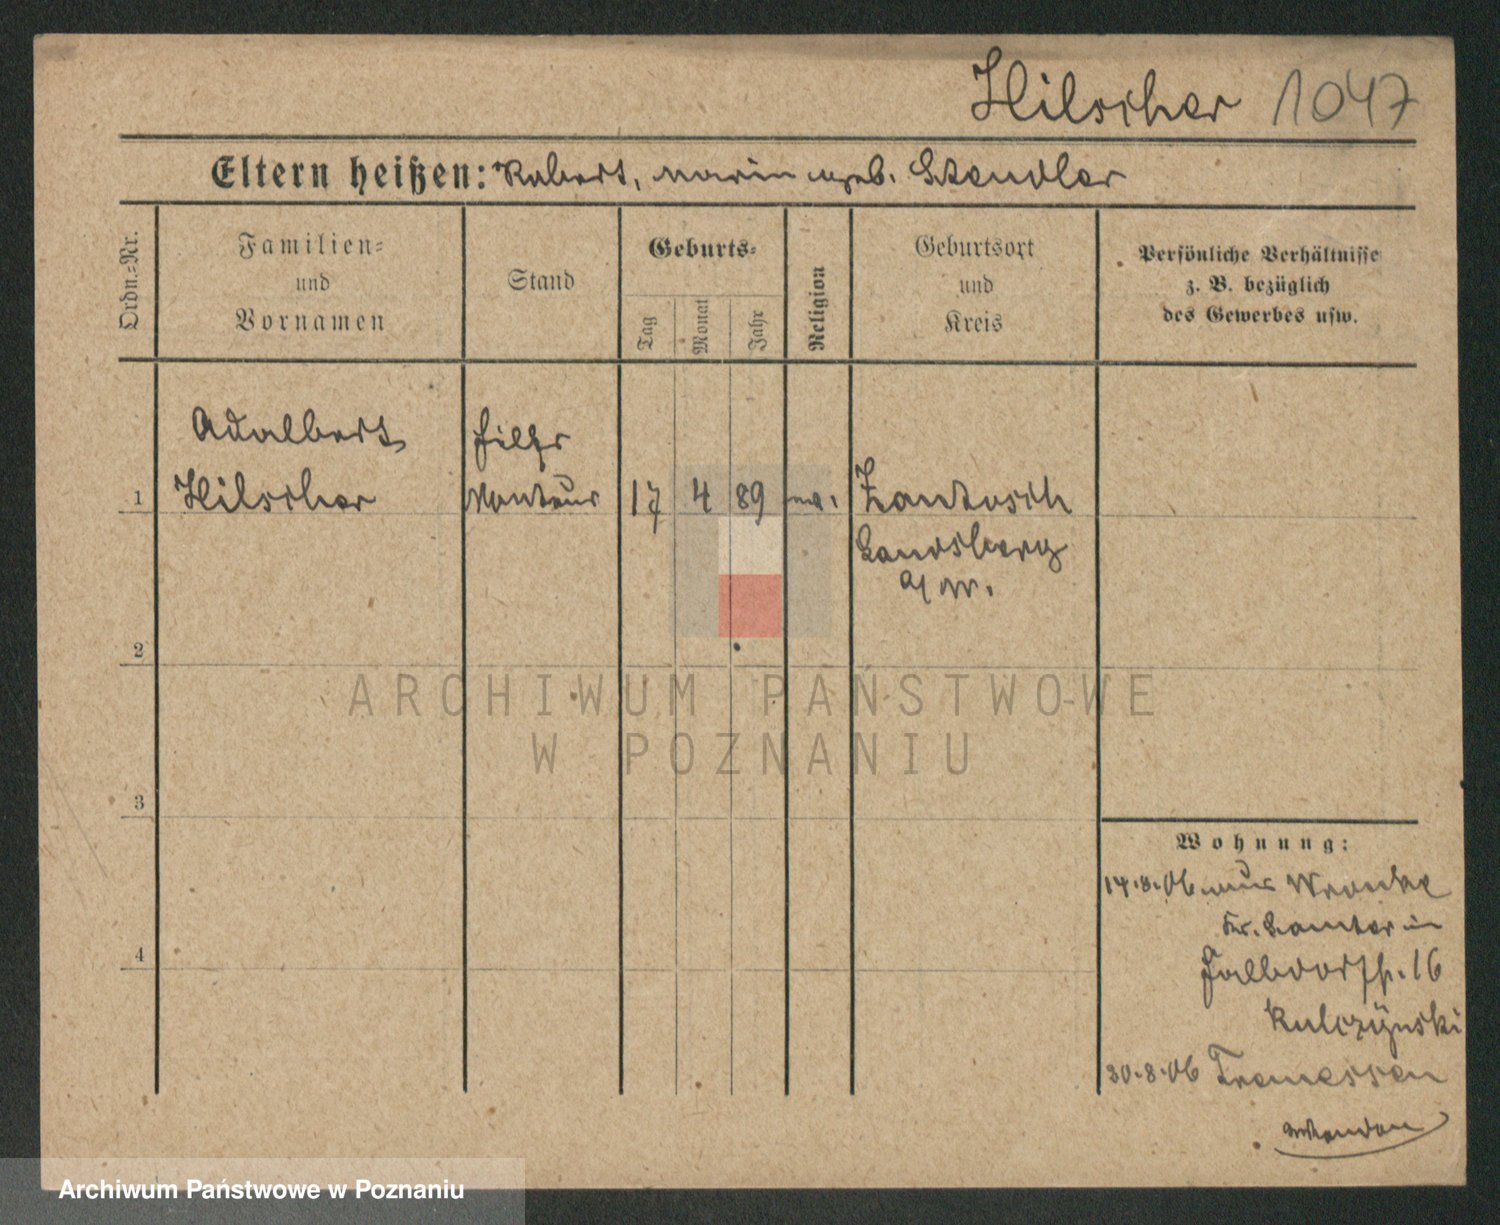 Hilscher 1047
Eltern heißen: Robert, Marie geb. Stendler
Ordn.=Nr.
Familien=
und
Vornamen
Stand
Geburts=
Tag
Monat
Jahr
Religion
Geburtsort
und
Kreis
Persönliche Verhältnisse
z. B. bezüglich
des Gewerbes usw.
Adalbert
Hilscher
Hilfs
Monteur
1
17 4 89 ev.
Zantosch
Landsberg
a/W.
2
3
4
ARCHIWUM PAŃSTWOWE
W POZNANIU
Wohnung:
14.8.06 aus Wronke
Kr. Samter in
Halbdorfstr. 16
Kulczynski
30.8.06 Tremessen
Archiwum Państwowe w Poznaniu